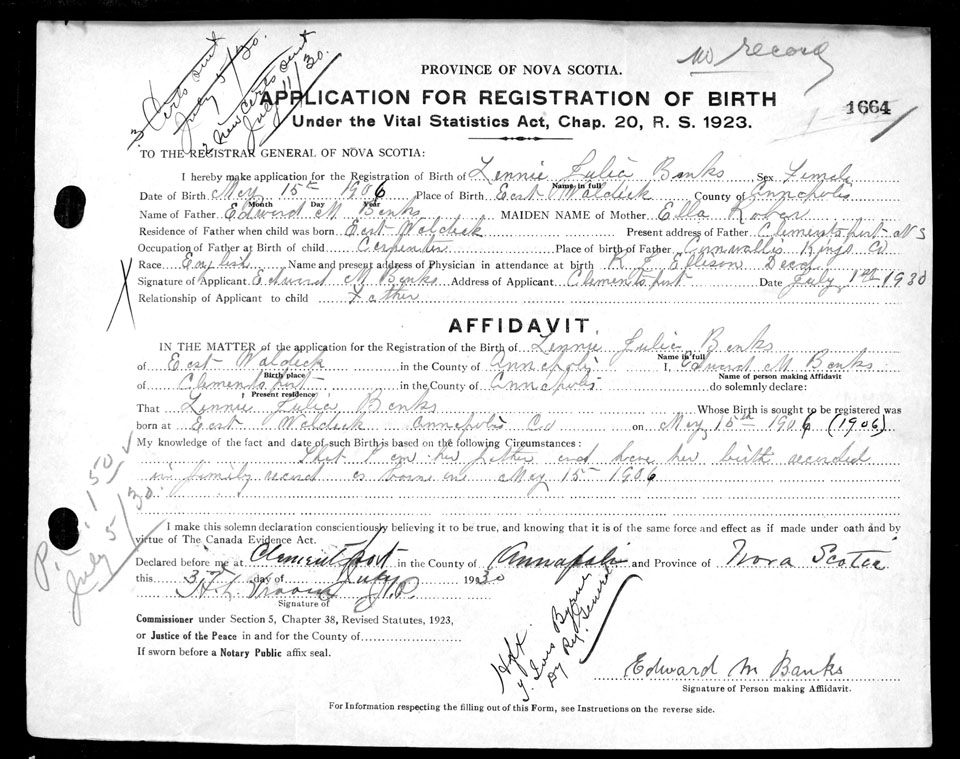 3 Certs sent
July 5/30.
2 New Certs sent
July 11/30.
no record
PROVINCE OF NOVA SCOTIA.
APPLICATION FOR REGISTRATION OF BIRTH
1664
Under the Vital Statistics Act, Chap. 20, R. S. 1923.
TO THE REGISTRAR GENERAL OF NOVA SCOTIA:
I hereby make application for the Registration of Birth of Lennie Julia Banks Sex Female
Name in full
Date of Birth May 15th 1906 Place of Birth East Waldeck County of Annapolis
Month Day Year
Name of Father Edward M Banks MAIDEN NAME of Mother Ella
Residence of Father when child was born East Waldeck Present address of Father Clementsport N S
Occupation of Father at Birth of child Carpenter Place of birth of Father Cornwallis Kings Co
Race English Name and present address of Physician in attendance at birth R L Ellison
Signature of Applicant Edward M Banks Address of Applicant Clementsport Date July 1st 1930
Relationship of Applicant to child Father
AFFIDAVIT.
IN THE MATTER of the application for the Registration of the Birth of Lennie Julia Banks
Name in full
of East Waldeck in the County of Annapolis I, Edward M Banks
Birth place Name of person making Affidavit
of Clementsport in the County of Annapolis do solemnly declare:
Present residence
That Lennie Julia Banks Whose Birth is sought to be registered was
born at East Waldeck Annapolis Co on May 15th 1906 (1906)
My knowledge of the fact and date of such Birth is based on the following Circumstances:
That I am her father and have her birth recorded
in family record as borne on May 15 1906
P. 1.50
July 5/30.
I make this solemn declaration conscientiously believing it to be true, and knowing that it is of the same force and effect as if made under oath and by
virtue of The Canada Evidence Act.
Declared before me at Clementsport in the County of Annapolis and Province of Nova Scotia
this 3rd day of July 1930
H L Vroom J.P.
Signature of
Commissioner under Section 5, Chapter 38, Revised Statutes, 1923,
or Justice of the Peace in and for the County of
If sworn before a Notary Public affix seal.
Hfx.
Byrne
Dy Reg. General
Edward M Banks
Signature of Person making Affidavit.
For Information respecting the filling out of this Form, see Instructions on the reverse side.